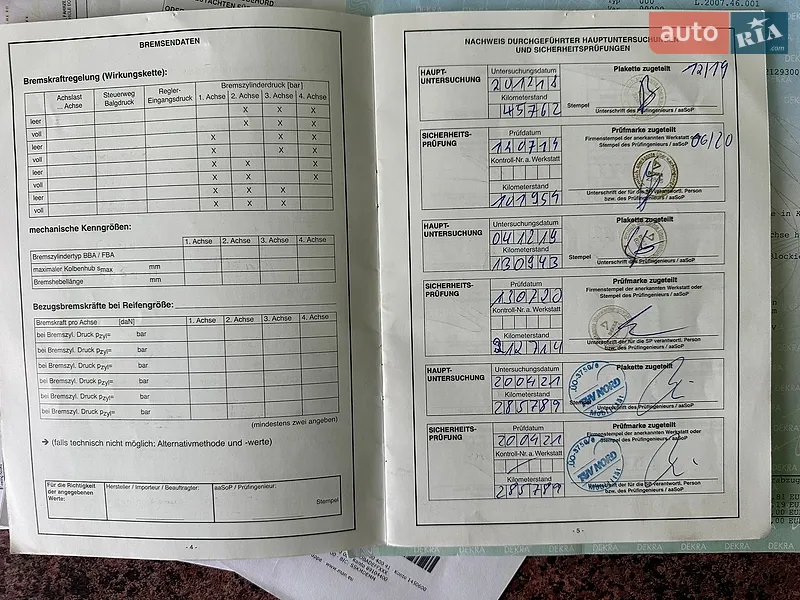 L.2007.46.001
auto RIA .com
BREMSENDATEN
Bremskraftregelung (Wirkungskette):
Achslast .. Achse
Steuerweg Balgdruck
Regler- Eingangsdruck
Bremszylinderdruck [bar]
1. Achse 2. Achse 3. Achse 4. Achse
leer X X X
voll X X X
leer X X X
voll X X X
leer X X X
voll X X X
leer X X X
voll X X X
mechanische Kenngrößen:
1. Achse 2. Achse 3. Achse 4. Achse
Bremszylindertyp BBA / FBA
maximaler Kolbenhub smax mm
Bremshebellänge mm
Bezugsbremskräfte bei Reifengröße:
Bremskraft pro Achse [daN] 1. Achse 2. Achse 3. Achse 4. Achse
bei Bremszyl. Druck pzyl= bar
bei Bremszyl. Druck pzyl= bar
bei Bremszyl. Druck pzyl= bar
bei Bremszyl. Druck pzyl= bar
bei Bremszyl. Druck pzyl= bar
bei Bremszyl. Druck pzyl= bar
(mindestens zwei angeben)
➔ (falls technisch nicht möglich; Alternativmethode und -werte)
Für die Richtigkeit der angegebenen Werte:
Hersteller / Importeur / Beauftragter:
aaSoP / Prüfingenieur:
Stempel
- 4 -
NACHWEIS DURCHGEFÜHRTER HAUPTUNTERSUCHUNGEN
UND SICHERHEITSPRÜFUNGEN
HAUPT-
UNTERSUCHUNG
Untersuchungsdatum
201218
Kilometerstand
45762
Stempel
Plakette zugeteilt
12/19
Unterschrift des Prüfingenieurs / aaSoP
SICHERHEITS-
PRÜFUNG
Prüfdatum
130719
Kontroll-Nr. a. Werkstatt
Kilometerstand
101959
Prüfmarke zugeteilt
06/20
Firmenstempel der anerkannten Werkstatt oder
Stempel des Prüfingenieurs / aaSoP
Unterschrift der für die SP verantwortl. Person
bzw. des Prüfingenieurs / aaSoP
HAUPT-
UNTERSUCHUNG
Untersuchungsdatum
041219
Kilometerstand
130943
Stempel
Plakette zugeteilt
Unterschrift des Prüfingenieurs / aaSoP
SICHERHEITS-
PRÜFUNG
Prüfdatum
130720
Kontroll-Nr. a. Werkstatt
Kilometerstand
212714
Prüfmarke zugeteilt
Firmenstempel der anerkannten Werkstatt oder
Stempel des Prüfingenieurs / aaSoP
Unterschrift der für die SP verantwortl. Person
bzw. des Prüfingenieurs / aaSoP
HAUPT-
UNTERSUCHUNG
Untersuchungsdatum
200421
Kilometerstand
285789
Plakette zugeteilt
TÜV NORD
Unterschrift des Prüfingenieurs / aaSoP
SICHERHEITS-
PRÜFUNG
Prüfdatum
200421
Kontroll-Nr. a. Werkstatt
Kilometerstand
285789
Prüfmarke zugeteilt
Firmenstempel der anerkannten Werkstatt oder
Stempel des Prüfingenieurs / aaSoP
TÜV NORD
Unterschrift der für die SP verantwortl. Person
bzw. des Prüfingenieurs / aaSoP
- 5 -
DEKRA DEKRA DEKRA DEKRA DEKRA DEKRA